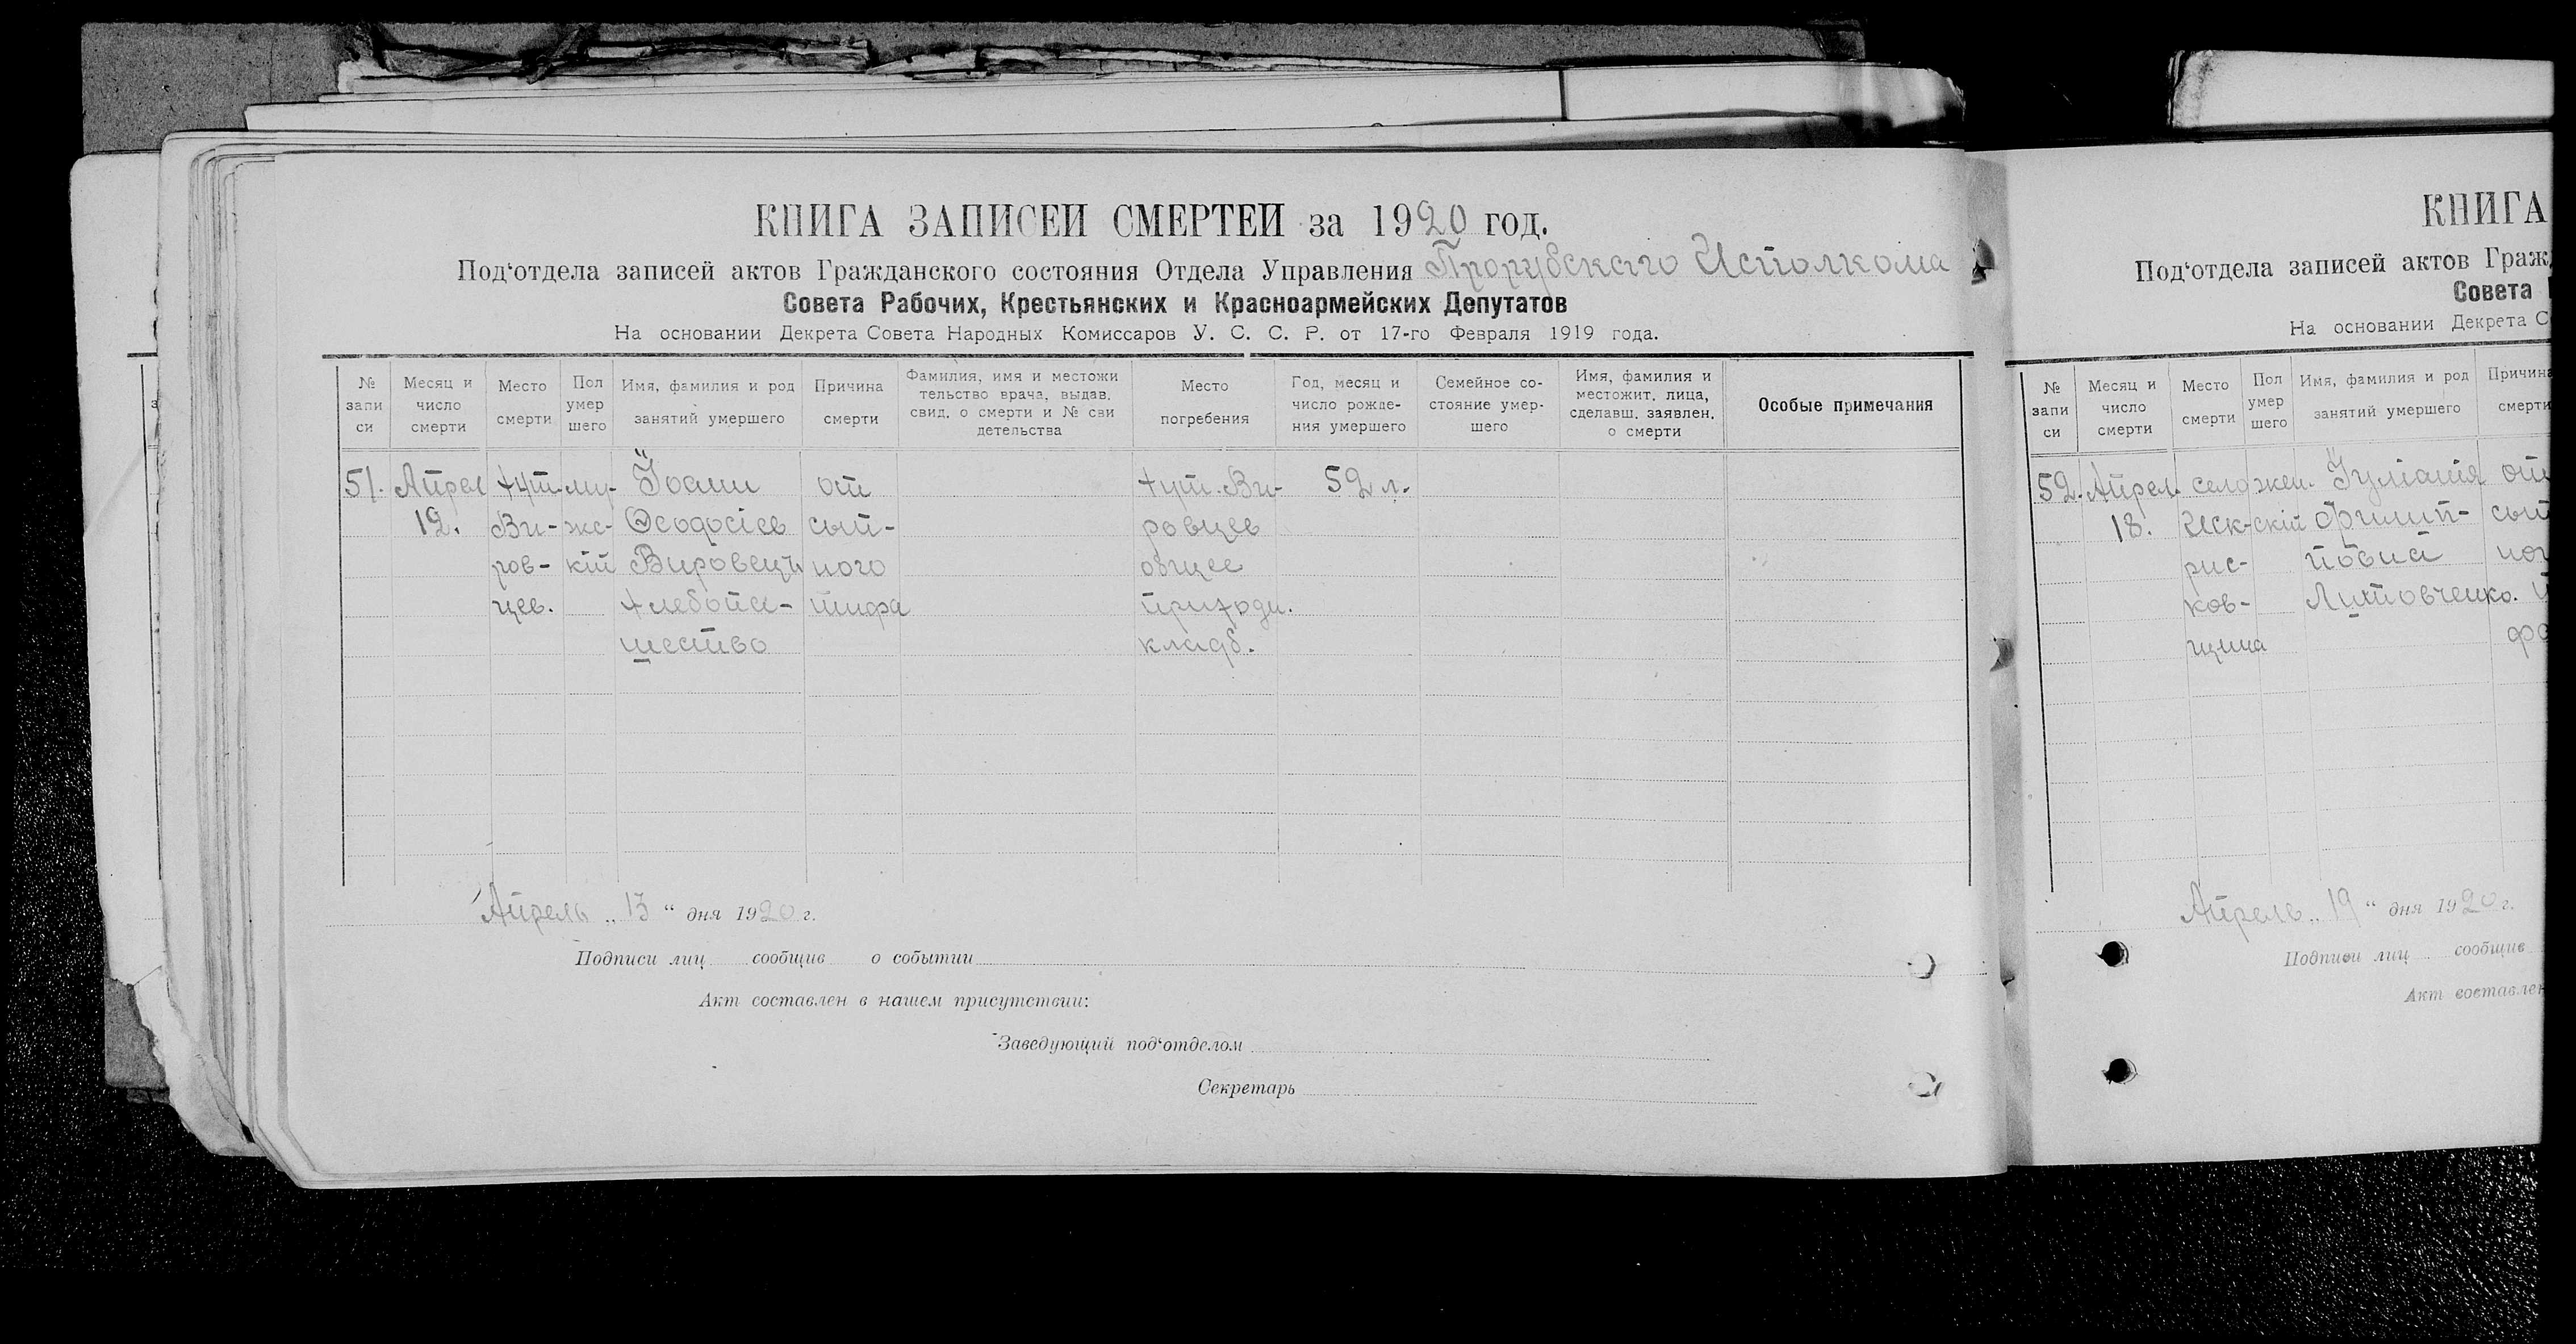 КНИГА ЗАПИСЕЙ СМЕРТЕЙ за 1920 год.
Под‘отдела записей актов Гражданского состояния Отдела Управления Прорубского Исполкома
Совета Рабочих, Крестьянских и Красноармейских Депутатов
На основании Декрета Совета Народных Комиссаров У. С. С. Р. от 17-го Февраля 1919 года.
№ запи си
Месяц и число смерти
Место смерти
Пол умер шего
Имя, фамилия и род занятий умершего
Причина смерти
Фамилия, имя и местожи тельство врача, выдав. свид. о смерти и № сви детельства
Место погребения
Год, месяц и число рожде- ния умершего
Семейное со- стояние умер- шего
Имя, фамилия и местожит. лица, сделавш. заявлен. о смерти
Особые примечания
51. Апрел хут. му- Іоанн от хут. Ви- 52 л.
12. Ви- жс- Ѳеодосіев сып- ровцев
ров- кій Вировецъ ного общее
цев. хлебопа- тифа приходн.
шество кладб.
Апрель „ 13 “ дня 1920 г.
Подписи лиц сообщив о событии
Акт составлен в нашем присутствии:
Заведующий под‘отделом
Секретарь
КНИГА
Под‘отдела записей актов Граж
Совета
На основании Декрета С
№ запи си
Месяц и число смерти
Место смерти
Пол умер шего
Имя, фамилия и род занятий умершего
Причина смерти
52. Апрел. село жен- Іуліанія от
18. Иск- скій Филип- сып
рис- повна ног
ков- Литовченко. т
щина фа
Апрель „ 19 “ дня 1920 г.
Подписи лиц сообщив
Акт составлен